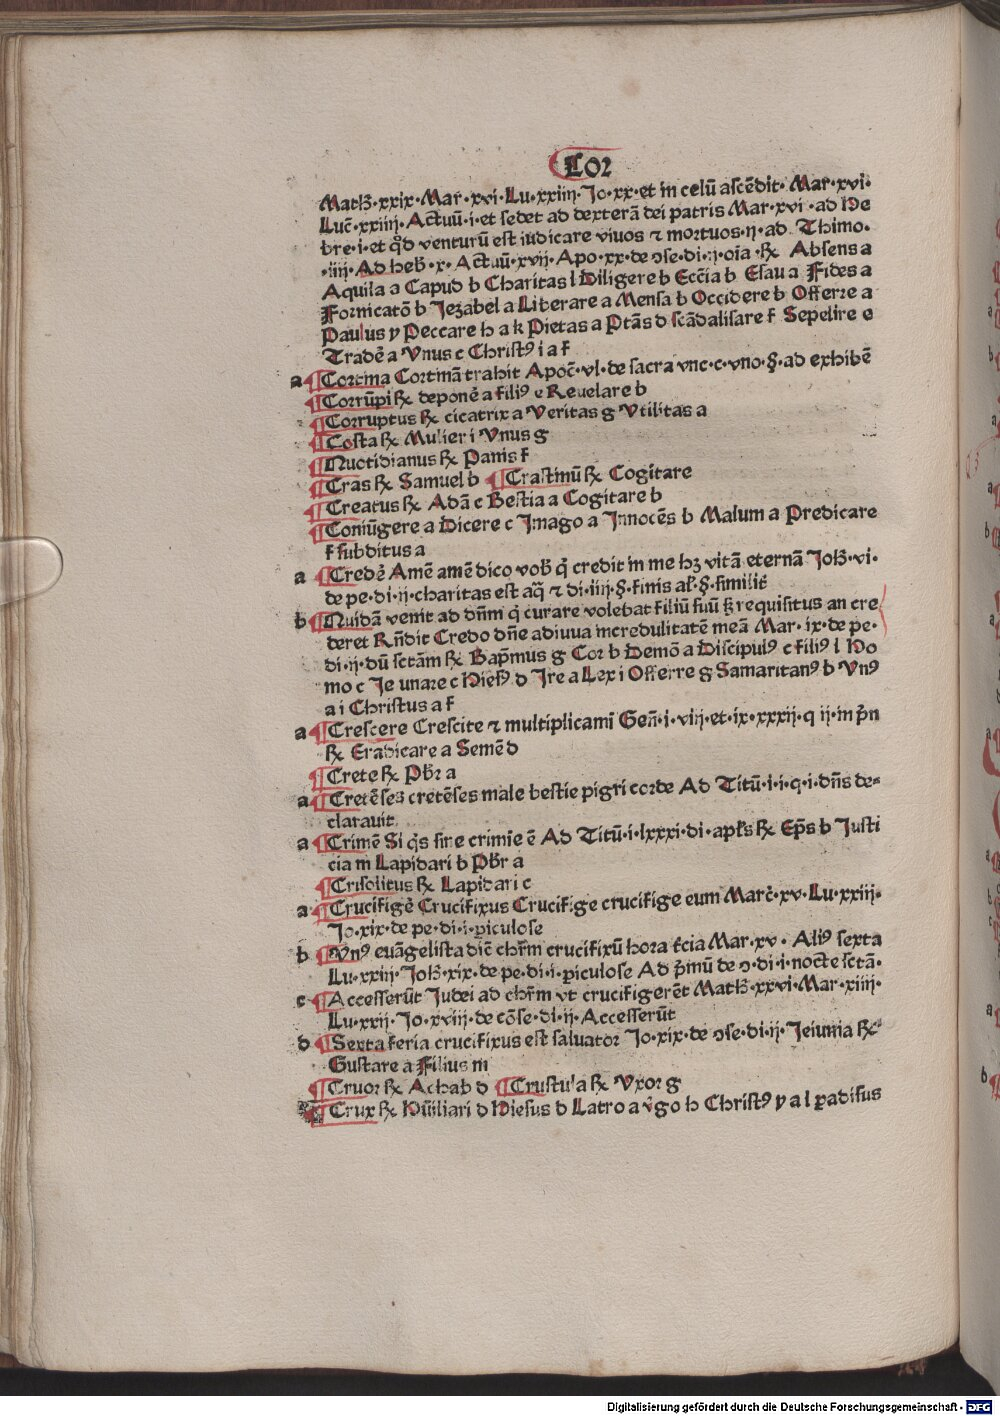 Cor
Math̄·xxix·Mar·xvi·Lu·xxiiii·Jo·xx·et in celū ascēdit·Mar·xvi·
Luc̄·xxiiii·Actuū·i·et sedet ad dexterā dei patris Mar·xvi·ad He
bre·i·et qd̄ venturū est iudicare viuos ⁊ mortuos·ij·ad Thimo·
·iiij·Ad heb̄·x·Actuū·xvij·Apo·xx·de ꝯse·di·ij·oīa·℞ Absens a
Aquila a Capud b Charitas l Diligere b Eccīa b Esau a Fides a
Fornicatō b Jezabel a Liberare a Mensa b Occidere b Offerre a
Paulus y Peccare h a k Pietas a Ptās d scādalisare f Sepelire e
Tradē a Vnus c Christꝰ i a f
a ¶Cortina Cortinā trahit Apoc̄·vl·de sacra vnc·c·vno·§·ad exhibē
¶Corrūpi ℞ deponē a filiꝰ e Reuelare b
¶Corruptus ℞ cicatrix a Veritas g Vtilitas a
¶Costa ℞ Mulier i Vnus g
¶Quotidianus ℞ Panis f
¶Cras ℞ Samuel b ¶Crastinū ℞ Cogitare
¶Creatus ℞ Adā c Bestia a Cogitare b
¶Coniūgere a Dicere c Jmago a Jnnocēs b Malum a Predicare
f subditus a
a ¶Credē Amē amē dico vob̄ q̄ credit in me hꝫ vitā eternā Joh̄·vi·
de pe·di·ij·charitas est aq̄ ⁊ di·iiij·§·finis al̄·§·similit̄
b ¶Quidā venit ad dn̄m q̄ curare volebat filiū suū ⁊ requisitus an cre
deret Rn̄dit Credo dn̄e adiuua incredulitatē meā Mar·ix·de pe·
di·ij·dū sctām ℞ Bap̄mus g Cor b Demō a Discipulꝰ c filiꝰ l Ho
mo c Je unare c Hiesꝰ d Jre a Lex i Offerre g Samaritanꝰ b Vnꝰ
a i Christus a f
a ¶Crescere Crescite ⁊ multiplicamī Gen̄·i·viij·et·ix·xxxij·q ij·in p̄n
℞ Eradicare a Semē d
¶Crete ℞ Pb̄r a
a ¶Cretēses cretēses male bestie pigri corde Ad Titū·i·i·q·i·dn̄s de-
clarauit
a ¶Crimē Si q̄s sine crimīe ē Ad Titū·i·lxxxi·di·apl̄s ℞ Ep̄s b Justi
cia m Lapidari b Pb̄r a
¶Crisolitus ℞ Lapidari c
a ¶Crucifigē Crucifixus Crucifige crucifige eum Marc̄·xv·Lu·xxiii·
Jo·xix·de pe·di·i·ꝑiculose
b ¶Vnꝰ euāgelista dic̄ chr̄m crucifixū hora t̄cia Mar·xv· Aliꝰ sexta
Lu·xxiij·Joh̄·xix·de pe·di·i·ꝑiculose Ad p̄mū de ꝯ·di·i·nocte sctā·
c ¶Accesserūt Judei ad chr̄m vt crucifigerēt Math̄·xxvi·Mar·xiiii·
Lu·xxij·Jo·xviij·de cōse·di·ij·Accesserūt
d ¶Sexta feria crucifixus est saluator Jo·xix·de ꝯse·di·ij·Jeiunia ℞
Gustare a Filius m
¶Cruor ℞ Achab d ¶Crustula ℞ Vxor g
¶Crux ℞ Hūiliari d Hiesus d Latro a v̄go h Christꝰ y a l ꝑadisus
Digitalisierung gefördert durch die Deutsche Forschungsgemeinschaft - DFG